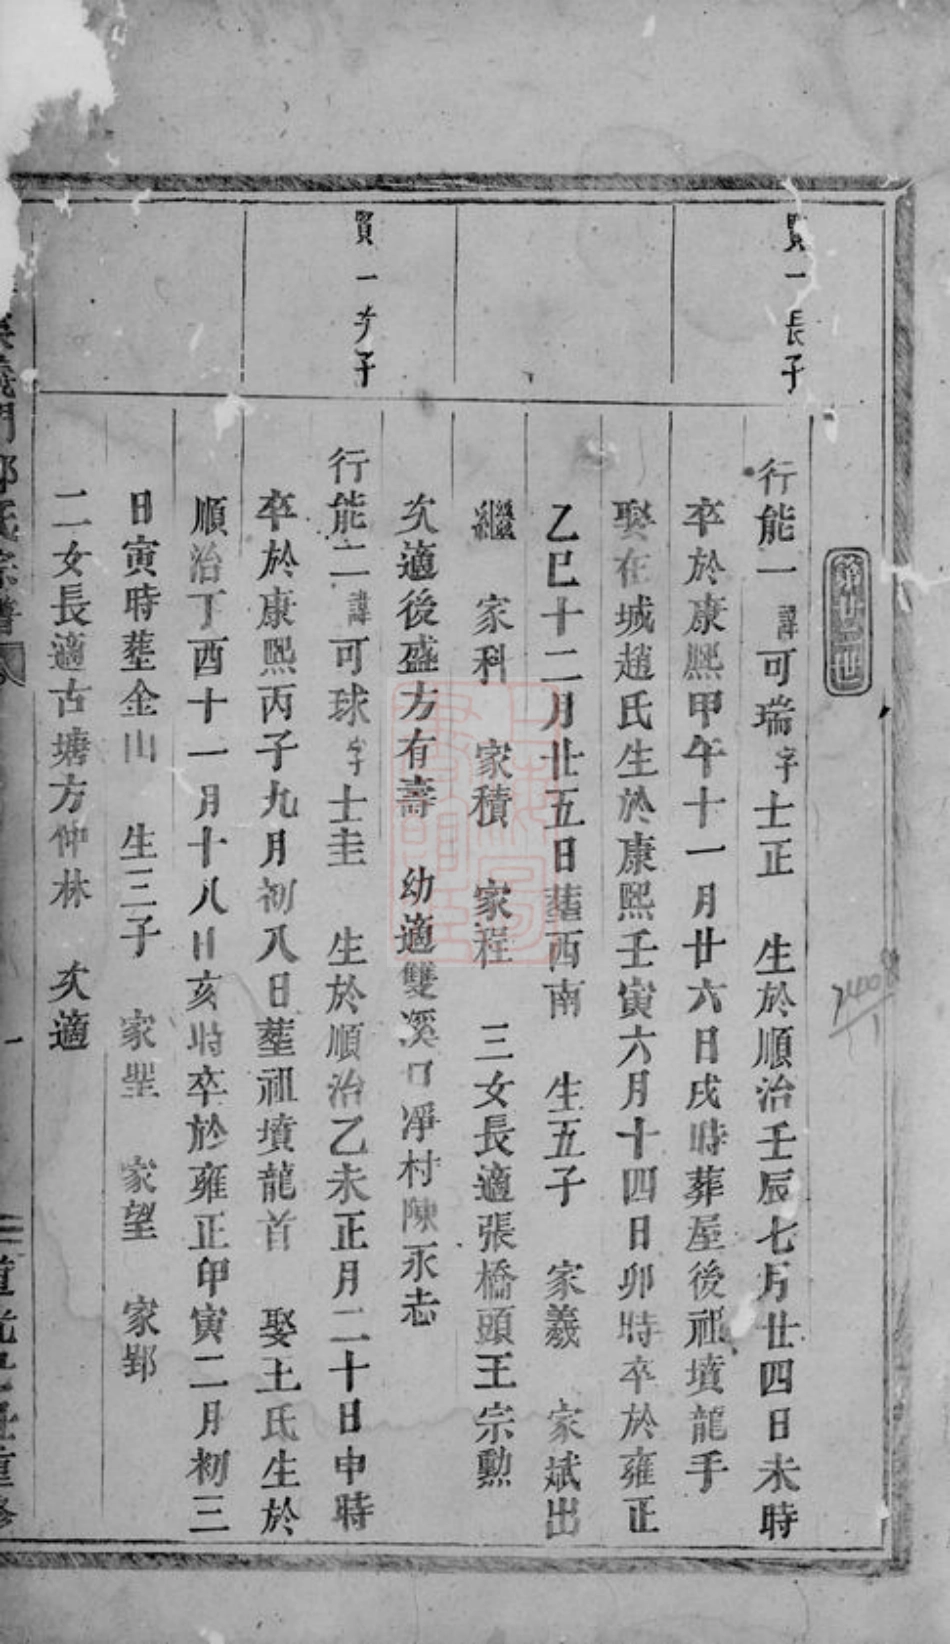 賢一長子
行能一諱可瑞字士正 生於順治壬辰七月廿四日未時
卒於康熙甲午十一月廿六日戌時葬屋後祖墳龍手
娶在城趙氏生於康熙壬寅六月十四日卯時卒於雍正
乙巳十二月廿五日塟西南 生五子 家義 家斌出
繼 家科 家積 家程 三女長適張橋頭王宗勲
次適後盛方有壽 幼適雙溪口凈村陳永志
賢一次子
行能二諱可球字士圭 生於順治乙未正月二十日申時
卒於康熙丙子九月初八日塟祖墳龍首 娶土氏生於
順治丁酉十一月十八日亥時卒於雍正甲寅二月初三
日寅時塟金山 生三子 家聖 家望 家郢
二女長適古塘方仲林 次適
義門 氏宗譜 一 道光 重修